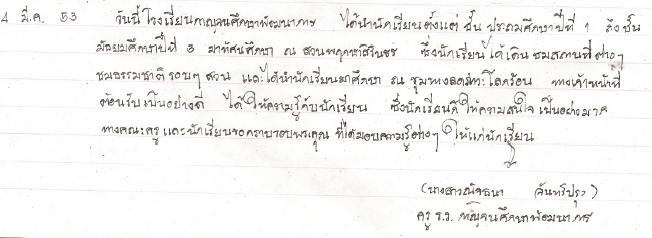 4 มี.ค. 53 วันนี้โรงเรียนกาญจนศึกษาพัฒนาการ ได้นำนักเรียนตั้งแต่ ชั้น ประถมศึกษาปีที่ 1 ถึงชั้น
มัธยมศึกษาปีที่ 3 มาทัศนศึกษา ณ สวนพฤกษาสิรินธร ซึ่งนักเรียนได้เดินชมสถานที่ต่างๆ
ชมธรรมชาติรอบๆ สวน และได้นำนักเรียนมาศึกษา ณ ชุมทาง ทางเจ้าหน้าที่
ต้อนรับเป็นอย่างดี ได้ให้ความรู้กับนักเรียน ซึ่งนักเรียนก็ให้ความสนใจเป็นอย่างมาก
ทางคณะครูและนักเรียนขอกราบขอบพระคุณ ที่ได้มอบความรู้ต่างๆ ให้แก่นักเรียน
(นางสาว จันทร์ปรุง)
ครู ร.ร. กาญจนศึกษาพัฒนาการ